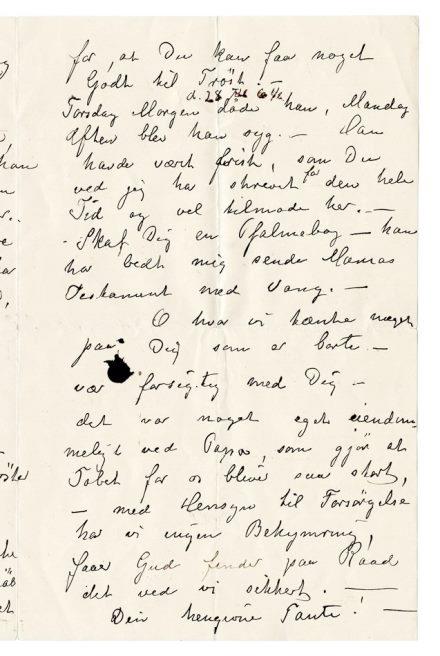 for, at Du kan faa noget
Godt til Trøst. —
d. 28
Torsdag Morgen døde han, Mandag
Aften blev han syg. — Han
havde vært frisk, som Du
ved jeg har skrevet før den hele
Tid og vel tilmode her. —
- Skaf Dig en Psalmebog — han
har bedt mig sende Mamas
Testament med Vang. —
O hvor vi tænke meget
paa Dig som er borte. —
vær forsigtig med Dig —
det var noget eget eiendom-
meligt ved Papa, som gjør at
Tabet for os bliver saa stort,
— med Hensyn til Forsørgelse
har vi ingen Bekymring,
faaer Gud finder paa Raad
det ved vi sikkert. —
Din hengivne Tante! —